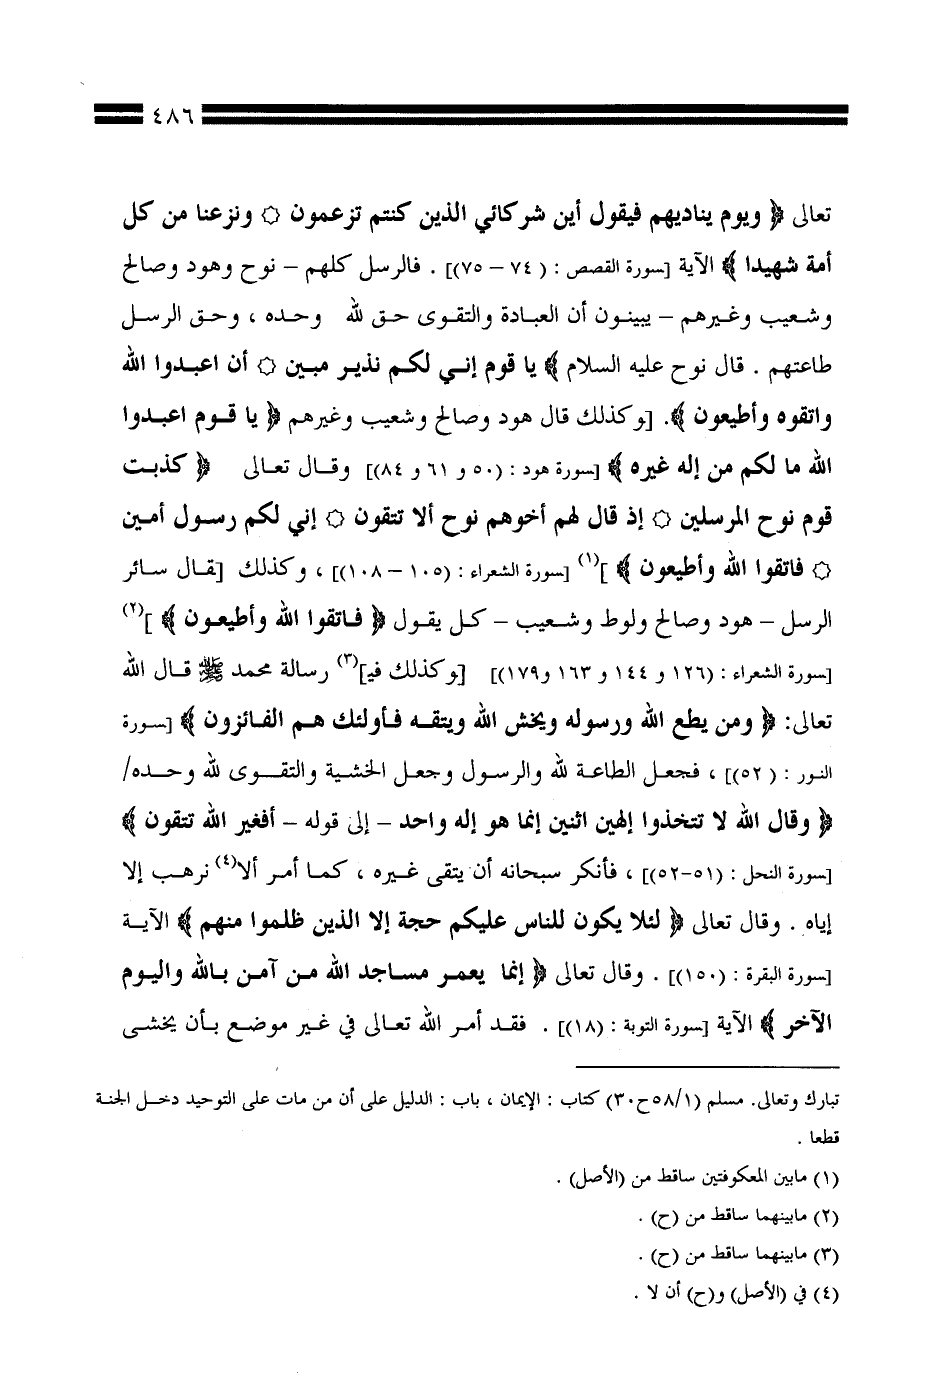 ٤٨٦
تعالى ﴿ ويوم يناديهم فيقول أين شركائي الذين كنتم تزعمون ۞ ونزعنا من كل
أمة شهيدا ﴾ الآية [سورة القصص : ( ٧٤ – ٧٥)] . فالرسل كلهم – نوح وهود وصالح
وشعيب وغيرهم – يبينون أن العبادة والتقوى حق لله وحده ، وحق الرسل
طاعتهم . قال نوح عليه السلام ﴾ يا قوم إني لكم نذير مبين ۞ أن اعبدوا الله
واتقوه وأطيعون ﴾. [وكذلك قال هود وصالح وشعيب وغيرهم ﴿ يا قوم اعبدوا
الله ما لكم من إله غيره ﴾ [سورة هود : (٥٠ و ٦١ و ٨٤)] وقال تعالى ﴿ كذبت
قوم نوح المرسلين ۞ إذ قال لهم أخوهم نوح ألا تتقون ۞ إني لكم رسول أمين
۞ فاتقوا الله وأطيعون ﴾ ](١) [سورة الشعراء : (١٠٥ – ١٠٨)] ، وكذلك [قال سائر
الرسل – هود وصالح ولوط وشعيب – كل يقول ﴿ فاتقوا الله وأطيعون ﴾ ](٢)
[سورة الشعراء : (١٢٦ و ١٤٤ و ١٦٣ و١٧٩)] [وكذلك في](٣) رسالة محمد ﷺ قال الله
تعالى: ﴿ ومن يطع الله ورسوله ويخش الله ويتقه فأولئك هم الفائزون ﴾ [سورة
النور : ( ٥٢)] ، فجعل الطاعة لله والرسول وجعل الخشية والتقوى لله وحده/
﴿ وقال الله لا تتخذوا إلهين اثنين إنما هو إله واحد – إلى قوله – أفغير الله تتقون ﴾
[سورة النحل : (٥١-٥٢)] ، فأنكر سبحانه أن يتقى غيره ، كما أمر ألا(٤) نرهب إلا
إياه . وقال تعالى ﴿ لئلا يكون للناس عليكم حجة إلا الذين ظلموا منهم ﴾ الآية
[سورة البقرة : (١٥٠)] . وقال تعالى ﴿ إنما يعمر مساجد الله من آمن بالله واليوم
الآخر ﴾ الآية [سورة التوبة : (١٨)] . فقد أمر الله تعالى في غير موضع بأن يخشى
تبارك وتعالى. مسلم (٥٨/١ح٣٠) كتاب : الإيمان ، باب : الدليل على أن من مات على التوحيد دخل الجنة
قطعا .
(١) مابين المعكوفتين ساقط من (الأصل) .
(٢) مابينهما ساقط من (ح) .
(٣) مابينهما ساقط من (ح) .
(٤) في (الأصل) و(ح) أن لا .